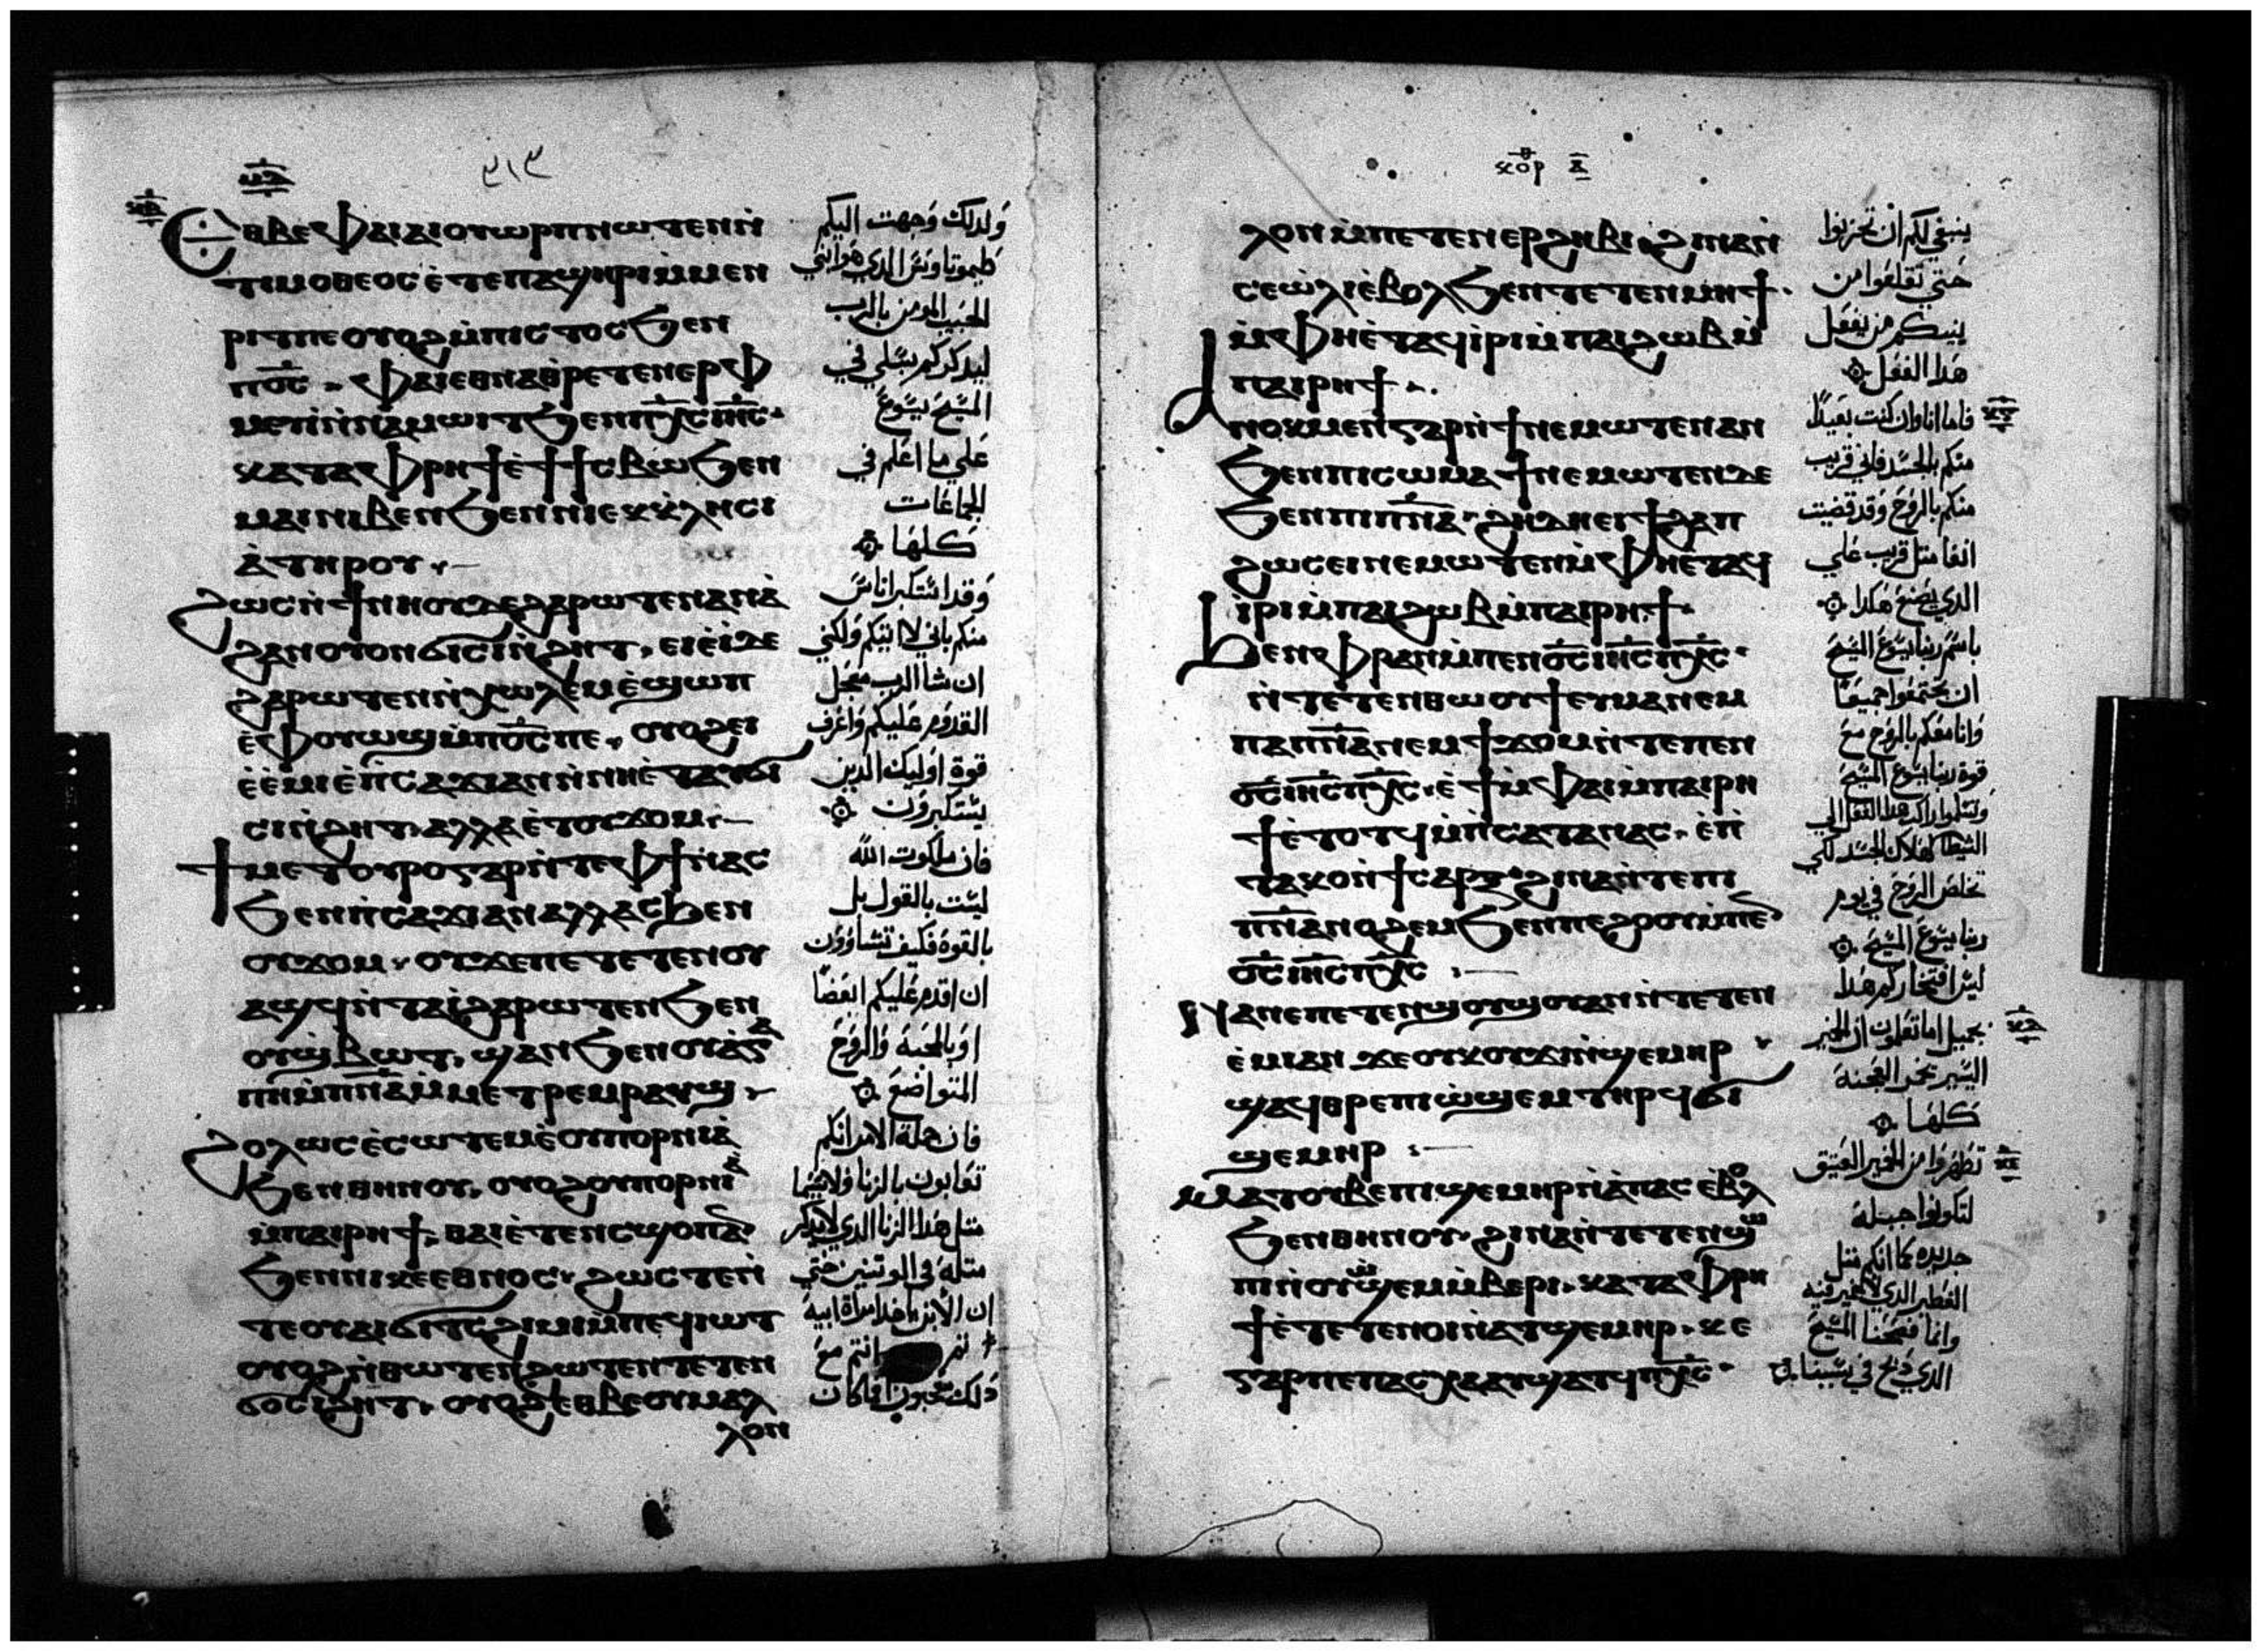 ⲉⲑⲃⲉⲫⲁⲓⲁⲓⲟⲩⲱⲣⲡⲛⲱⲧⲉⲛⲛ̀
ⲧⲓⲙⲟⲑⲉⲟⲥⲉ̀ⲧⲉⲡⲁϣⲏⲣⲓⲙ̀ⲙⲉⲛ
ⲣⲓⲧⲡⲉⲟⲩⲟϩⲙ̀ⲡⲓⲥⲧⲟⲥϧⲉⲛ
ⲡⲟ̅ⲥ̅ ⲫⲁⲓⲉⲑⲛⲁⲑⲣⲉⲧⲉⲛⲉⲣⲫ
ⲙⲉⲩⲓ̀ⲛ̀ⲛⲁⲙⲱⲓⲧϧⲉⲛⲡⲭ̅ⲥ̅ⲓⲏ̅ⲥ̅
ⲕⲁⲧⲁⲫⲣⲏϯⲉ̀ϯϯⲥⲃⲱϧⲉⲛ
ⲙⲁⲓⲛⲓⲃⲉⲛϧⲉⲛⲛⲓⲉⲕⲕ̀ⲗⲏⲥⲓ
ⲁ̀ⲧⲏⲣⲟⲩ
ϩⲱⲥⲛ̀ϯⲛⲏⲟⲩⲇⲉϩⲁⲣⲱⲧⲉⲛⲁⲛⲁ̀
ϩⲁⲛⲟⲩⲟⲛϭⲓⲥⲓⲛ̀ϩⲏⲧ, ⲉⲓⲉ̀ⲓ̀ⲇⲉ
ϩⲁⲣⲱⲧⲉⲛⲛ̀ⲭⲱⲗⲉⲙⲉ̀ϣⲱⲡ
ⲉ̀ⲫⲟⲩⲱϣⲙ̀ⲡⲟ̅ⲥ̅ⲡⲉ, ⲟⲩⲟϩⲉⲓ
ⲉ̀ⲉ̀ⲙⲓⲉ̀ⲡ̀ⲥⲁϫⲓⲁⲛⲛ̀ⲛⲏⲉ̀ⲧⲁⲩϭⲓ
ⲥⲓⲛ̀ϩⲏⲧ, ⲁⲗⲗⲁⲉ̀ⲧⲟⲩϫⲟⲙ
ϯⲙⲉⲧⲟⲩⲣⲟⲅⲁⲣⲛ̀ⲧⲉⲫϯⲛⲁⲥ
ϧⲉⲛⲡ̀ⲥⲁϫⲓⲁⲛⲁⲗⲗⲁⲥϧⲉⲛ
ⲟⲩϫⲟⲙ ⲟⲩϫⲉⲡⲉⲧⲉⲧⲉⲛⲟⲩ
ⲁϣϥⲛ̀ⲧⲁⲓ̀ϩⲁⲣⲱⲧⲉⲛϧⲉⲛ
ⲟⲩϣ̀ⲃⲱⲧ, ϣⲁⲛϧⲉⲛⲟⲩⲁ̀ⲅⲁ
ⲡⲏⲙ̀ⲡⲛ̅ⲁ̅ⲙ̀ⲙⲉⲧⲣⲉⲙⲣⲁⲩϣ
ϩⲟⲗⲱⲥⲉ̀ⲥⲱⲧⲉⲙⲉ̀ⲟⲩⲡⲟⲣⲛⲓⲁ̀
ϧⲉⲛⲑⲏⲛⲟⲩ, ⲟⲩⲟϩⲟⲩⲡⲟⲣⲛⲓⲁ̀
ⲙ̀ⲡⲁⲓⲣⲏϯ, ⲑⲁⲓⲉ̀ⲧⲉⲛⲥϣⲟⲡⲁⲛ
ϧⲉⲛⲛⲓⲕⲉⲉⲑⲛⲟⲥ, ϩⲱⲥⲧⲉⲛ̀
ⲧⲉⲟⲩⲁⲓϭⲓⲧⲥϩⲓⲙⲓⲙ̀ⲡⲉϥⲓⲱⲧ
ⲟⲩⲟϩⲛ̀ⲑⲱⲧⲉⲛϩⲱⲧⲉⲛⲧⲉⲧⲉⲛ
ϭⲟⲥⲓϩⲏⲧ, ⲟⲩⲟϩⲉⲑⲃⲉⲟⲩⲙⲁⲗ
ⲗⲟⲛ
٣١٣
ولدلك وجهت اليكم
طيموتاوس الدي هو ابني
الحبيب المومن بالرب
ليدكركم بسبلي في
المسيح يسوع
على ما اعلم في
الجماعات
كلها
وقد استكبر اناس
منكم باني لا اتيكم ولكني
ان شا الرب معجل
القدوم عليكم واعرف
قوة اوليك الدين
يستكبرون
فان ملكوت الله
ليست بالقول بل
بالقوة فكيف تشاوون
ان اقدم عليكم ابعصا
او بالمحبة والروح
المتواضع
فان جملة الامر انكم
تعابون بالزنا ولا سيما
مثل هدا الزنا الدي لا يدكر
مثله في الوتنيين حتى
ان الابن ياخد امراة ابيه
انتم مع
دلك معجبون افما كان
ⲕⲟⲣ ⲁ̅
ⲗⲟⲛⲙ̀ⲡⲉⲧⲉⲛⲉⲣϩⲏⲃⲓ, ϩⲓⲛⲁⲛ̀
ⲥⲉⲱ̀ⲗⲓⲉ̀ⲃⲟⲗϧⲉⲛⲧⲉⲧⲉⲛⲙⲏϯ
ⲙ̀ⲫⲏⲉ̀ⲧⲁϥⲓ̀ⲣⲓⲙ̀ⲡⲁⲓϩⲱⲃⲙ̀
ⲡⲁⲓⲣⲏϯ
ⲁⲛⲟⲕⲙⲉⲛⲅⲁⲣⲛ̀ϯⲛⲉⲙⲱⲧⲉⲛⲁⲛ
ϧⲉⲛⲡⲓⲥⲱⲙⲁϯⲛⲉⲙⲱⲧⲉⲛⲇⲉ
ϧⲉⲛⲡⲓⲡⲛ̅ⲁ̅ ϩⲏⲇⲏⲉⲓϯϩⲁⲡ
ϩⲱⲥⲉⲓⲛⲉⲙⲱⲧⲉⲛⲙ̀ⲫⲏⲉ̀ⲧⲁϥ
ⲓ̀ⲣⲓⲙ̀ⲡⲁⲓϩⲱⲃⲙ̀ⲡⲁⲓⲣⲏϯ
ϧⲉⲛⲫⲣⲁⲛⲙ̀ⲡⲉⲛⲟ̅ⲥ̅ⲓⲏ̅ⲥ̅ⲡⲭ̅ⲥ̅
ⲛ̀ⲧⲉⲧⲉⲛⲑⲱⲟⲩϯⲉⲩⲙⲁⲛⲉⲙ
ⲡⲁⲡⲛ̅ⲁ̅ⲛⲉⲙϯϫⲟⲙⲛ̀ⲧⲉⲡⲉⲛ
ⲟ̅ⲥ̅ⲓⲏ̅ⲥ̅ⲡⲭ̅ⲥ̅, ⲉ̀ϯⲙ̀ⲫⲁⲓⲙ̀ⲡⲁⲓⲣⲏ
ϯⲉ̀ⲧⲟⲧϥⲙ̀ⲡ̀ⲥⲁⲧⲁⲛⲁⲥ, ⲉ̀ⲡ̀
ⲧⲁⲕⲟⲛ̀ϯⲥⲁⲣⲝ ϩⲓⲛⲁⲛ̀ⲧⲉⲡⲓ
ⲡⲛ̅ⲁ̅ⲛⲟϩⲉⲙϧⲉⲛⲡⲉϩⲟⲟⲩⲙ̀ⲡⲉⲛ
ⲟ̅ⲥ̅ⲓⲏ̅ⲥ̅ⲡⲭ̅ⲥ̅
ⲛⲁⲛⲉⲡⲉⲧⲉⲛϣⲟⲩϣⲟⲩⲁⲛⲛ̀ⲧⲉⲧⲉⲛ
ⲉ̀ⲙⲓⲁⲛ ϫⲉⲟⲩⲕⲟⲩϫⲓⲛ̀ϣⲉⲙⲏⲣ
ϣⲁϥⲑⲣⲉⲡⲓⲱ̀ϣⲉⲙⲧⲏⲣϥϭⲓ
ϣⲉⲙⲏⲣ
ⲙⲁⲧⲟⲩⲃⲉⲡⲓϣⲉⲙⲏⲣⲛ̀ⲁ̀ⲡⲁⲥⲉⲃⲟⲗ
ϧⲉⲛⲑⲏⲛⲟⲩ, ϩⲓⲛⲁⲛ̀ⲧⲉⲧⲉⲛϣⲱ
ⲡⲓⲛ̀ⲟⲩⲱϣⲉⲙⲙ̀ⲃⲉⲣⲓ, ⲕⲁⲧⲁⲫⲣⲏ
ϯⲉ̀ⲧⲉⲧⲉⲛⲟⲓⲛ̀ⲁⲧϣⲉⲙⲏⲣ, ⲕⲉ
ⲅⲁⲣⲡⲉⲛⲡⲁⲥⲭⲁⲁⲩϣⲁⲧϥⲡⲭ̅ⲥ̅
ينبغي لكم ان تحزنوا
حتي تقلعوا من
بينكم من يفعل
هدا الفعل
فاما انا وان كنت بعيدا
منكم بالجسد فاني قريب
منكم بالروح وقد قضيت
انفا مثل قريب على
الدي يصنع هكدا
باسم ربنا يسوع المسيح
ان تجتمعوا جميعا
وانا معكم بالروح مع
قوة ربنا يسوع المسيح
وتسلموا راكب هدا الفعل الي
الشيطان لهلاك الجسد لكي
تخلص الروح في يوم
ربنا يسوع المسيح
ليس افتخاركم هدا
بجميل اما تعلمون ان الخمير
اليسير يخمر العجنة
كلها
تطهروا من الخمير العتيق
لتكونوا جبلة
جديده كما انكم مثل
الفطير الدي لا خمير فيه
وانما فصحنا المسيح
الدي دبح في سببنا